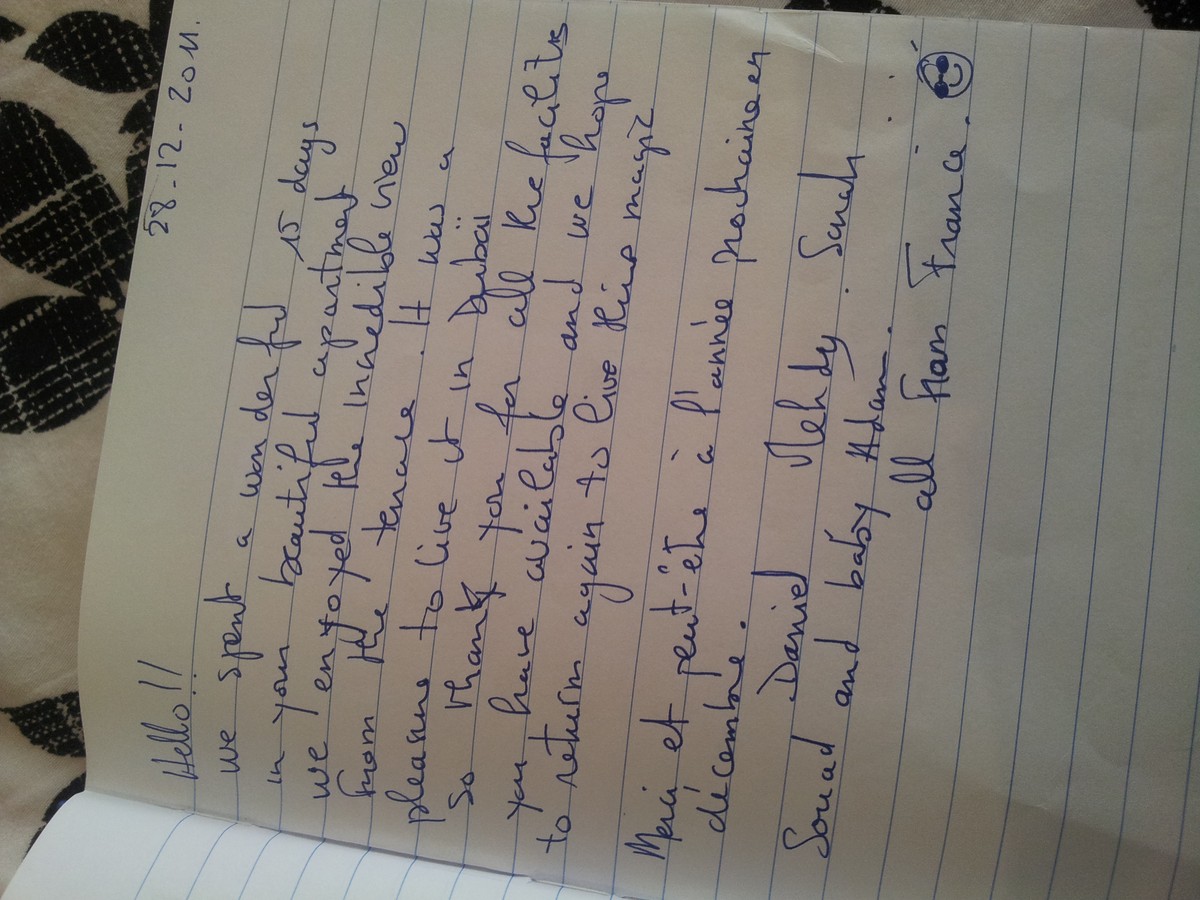 28-12-2011.
Hello!!
we spent a wonderful 15 days
in your beautiful apartment
we enjoyed the incredible view
from the terrase. It was a
pleasure to live it in Dubaï
So thank you for all the facilitis
you have available and we hope
to return again to live this magic
Merci et peut-être à l'année prochaine en
décembre.
Daniel Mehdy. Sarah
Souad and baby Adam.
all From France.